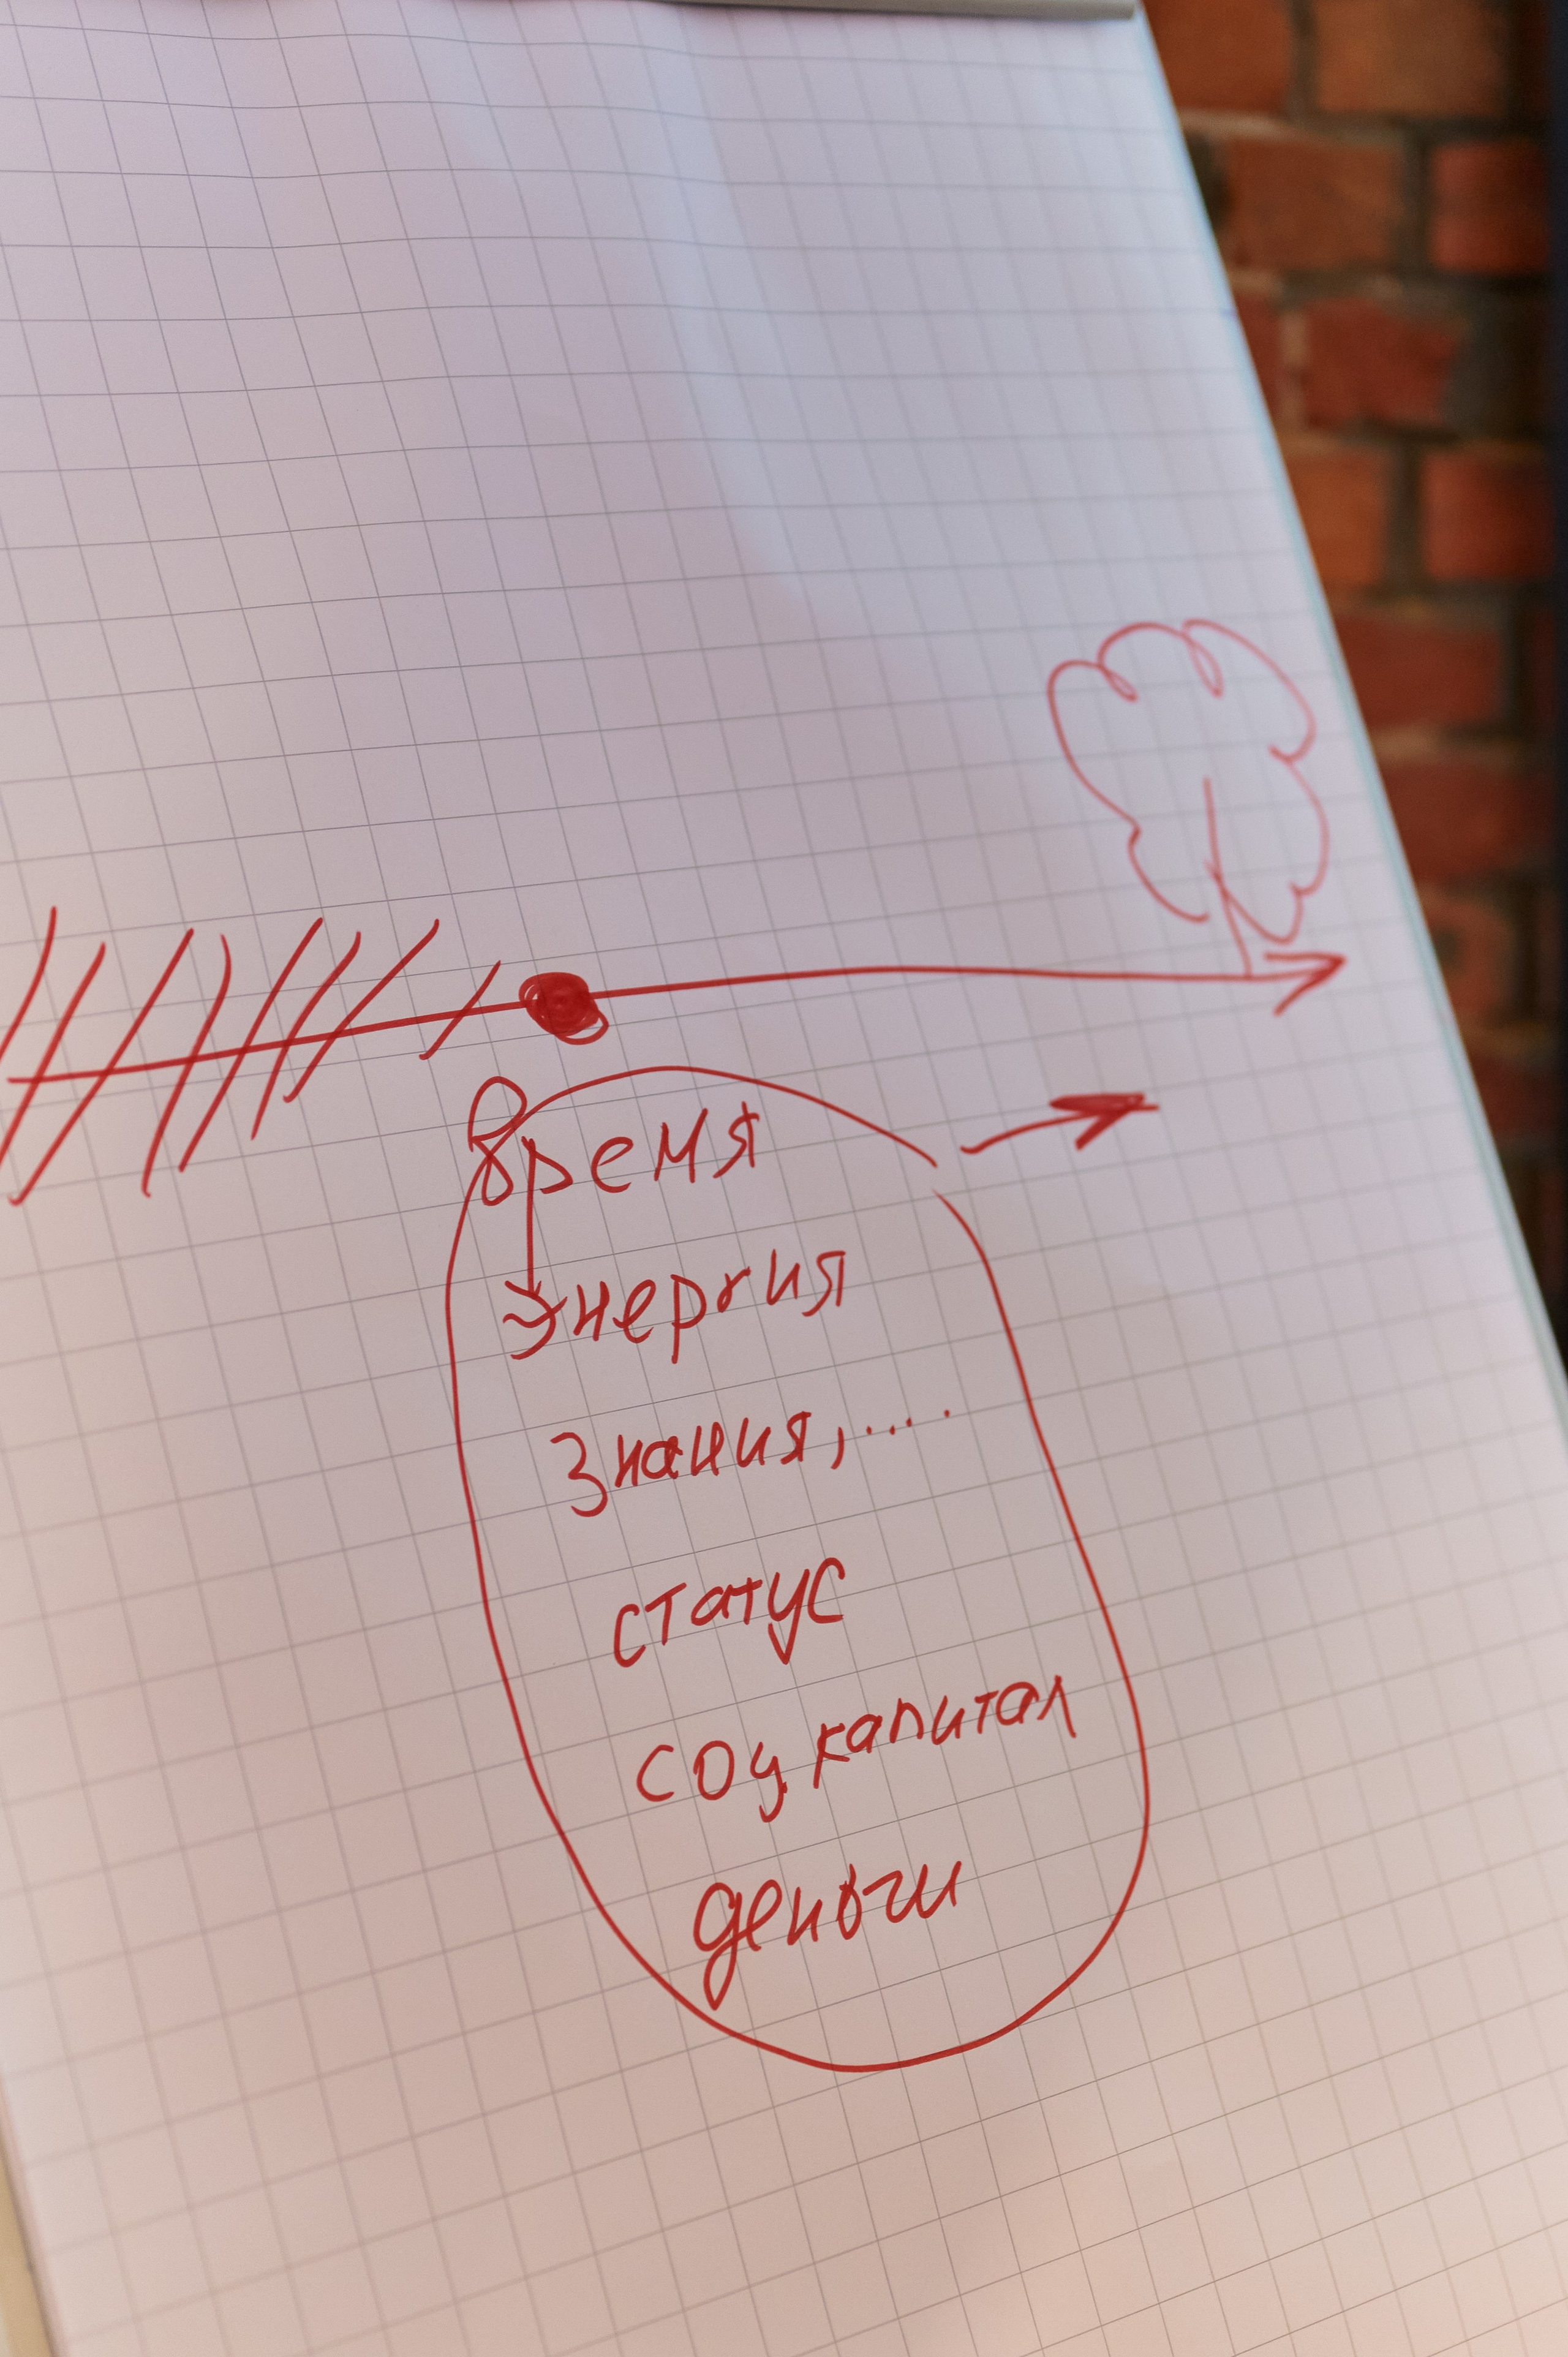 Время
Энергия
Знания,.....
статус
соц капитал
деньги